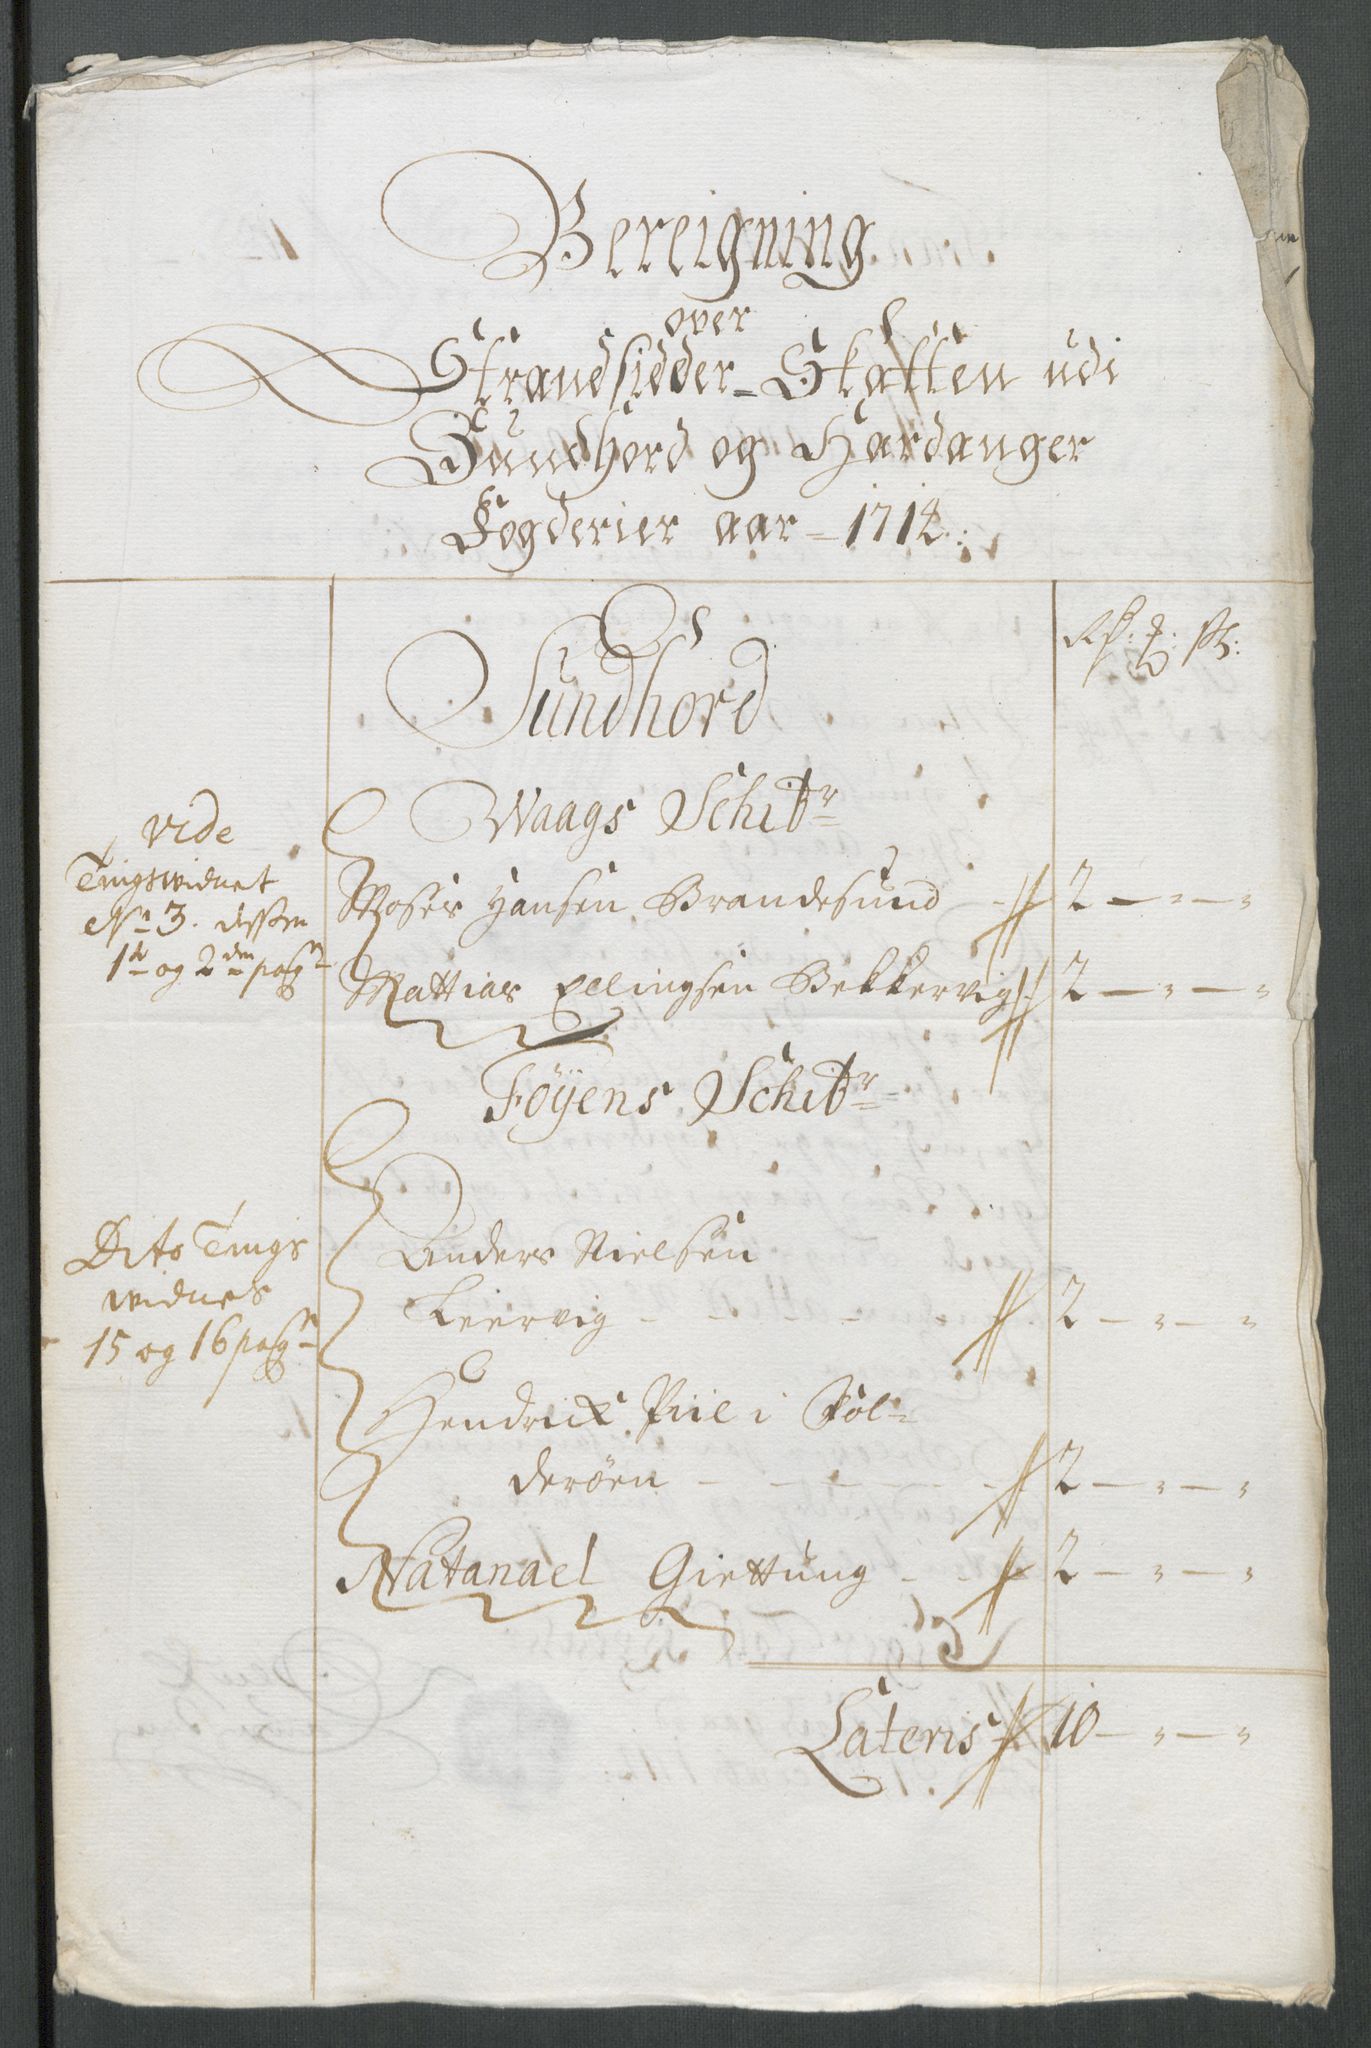 Bereigning
over
Strandsidder-Skatten udi
Sundhord og Hardanger
Fogderier aar - 1712.
Sundhord
Waags Schibr
vide
Tingswidnet
No 3. dessen
1te og 2den pag
Moses Hansen Brandesund - 2 - " - "
Mattias Ellingsen Bekkervig 2 - " - "
Föyens Schibr
Dito Tings
widnes
15 og 16 pag
Anders Nielsen
Leervig - - - 2 - " - "
Hendrick Piil i Fol-
deröen - - - - - 2 - " - "
Natanael Giettung - - 2 - " - "
Lateris 10 - " - "